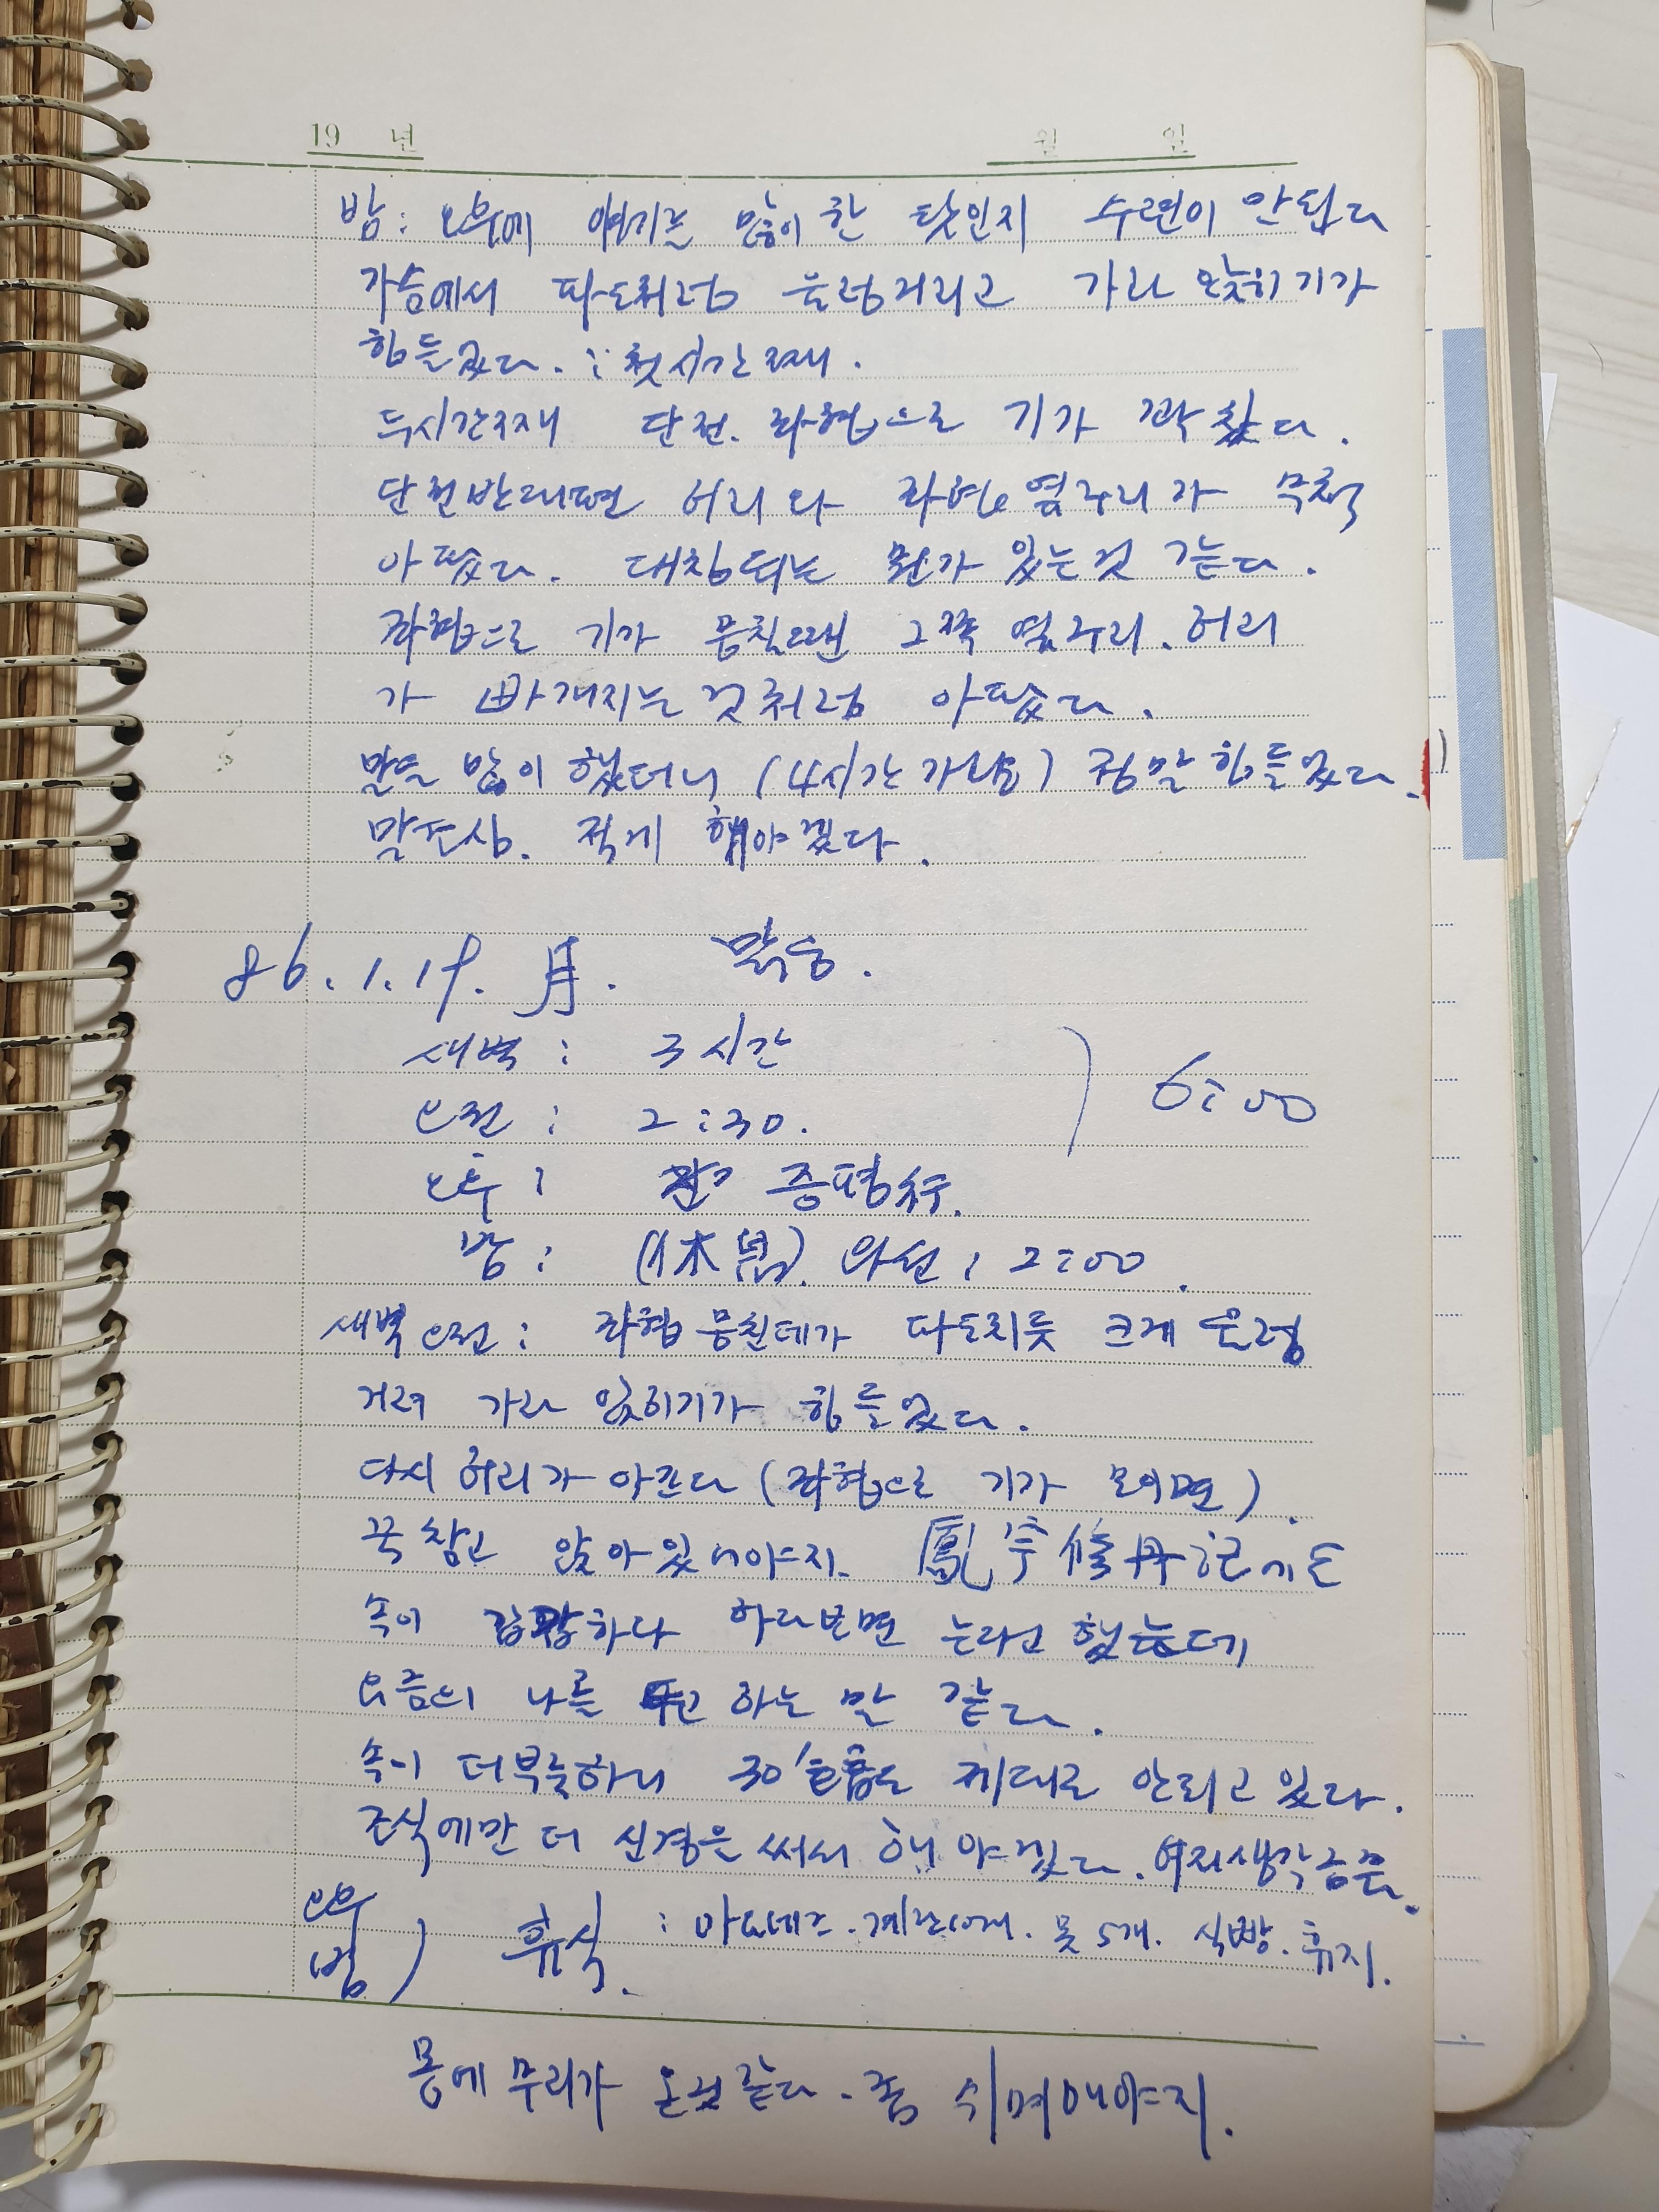 19 년 월 일
밤 : 오후에 얘기를 많이 한 탓인지 수련이 안된다
가슴에서 파도처럼 울렁거리고 가라 앉히기가
힘들었다. : 첫시간째.
두시간째 단전. 좌협으로 기가 꽉 찼다.
단전반대편 허리와 좌협 옆구리가 무척
아펐다. 대칭되는 뭔가 있는것 같다.
좌협으로 기가 뭉칠땐 그쪽 옆구리. 허리
가 빠개지는 것처럼 아펐다.
말을 많이 했더니 (4시간가량) 정말 힘들었다.
말조심. 적게 해야겠다.
86.1.19. 月. 맑음.
새벽 : 3시간
오전 : 2:30.
6:00
오후 : 증평行.
밤 : (休息). 와선 : 2:00.
새벽오전 : 좌협 뭉친데가 파도치듯 크게 울렁
거려 가라 앉히기가 힘들었다.
다시 허리가 아프다 (좌협으로 기가 모이면).
꾹 참고 앉아있어야지. 鳳宇修丹記에도
속이 갑갑하다 하다보면 는다고 했는데
요즘의 나를 두고 하는 말 같다.
속이 더부룩하니 30'호흡도 제대로 안되고 있다.
조식에만 더 신경을 써서 해야겠다. 여자생각금물.
오후
밤 ) 휴식. : 마요네즈. 계란10개. 못5개. 식빵. 휴지.
몸에 무리가 온것같다. 좀 쉬며해야지.